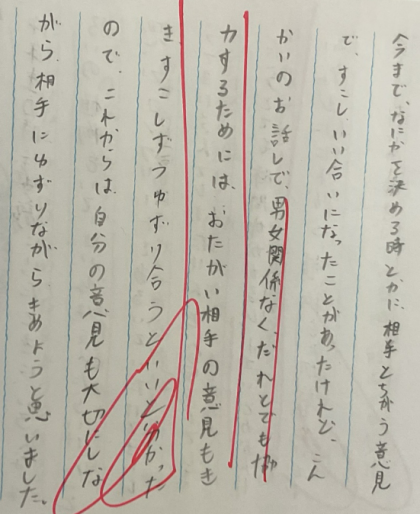 今まで、なにかを決める時とかに、相手とちがう意見
で、すこしいい合いになったことがあったけれど、こん
かいのお話しで、男女関係なく、だれとでも協
力するためには、おたがい相手の意見もき
きすこしずつゆずり合うといいと分かった
ので、これからは、自分の意見も大切にしな
がら、相手にゆずりながらきめようと思いました。